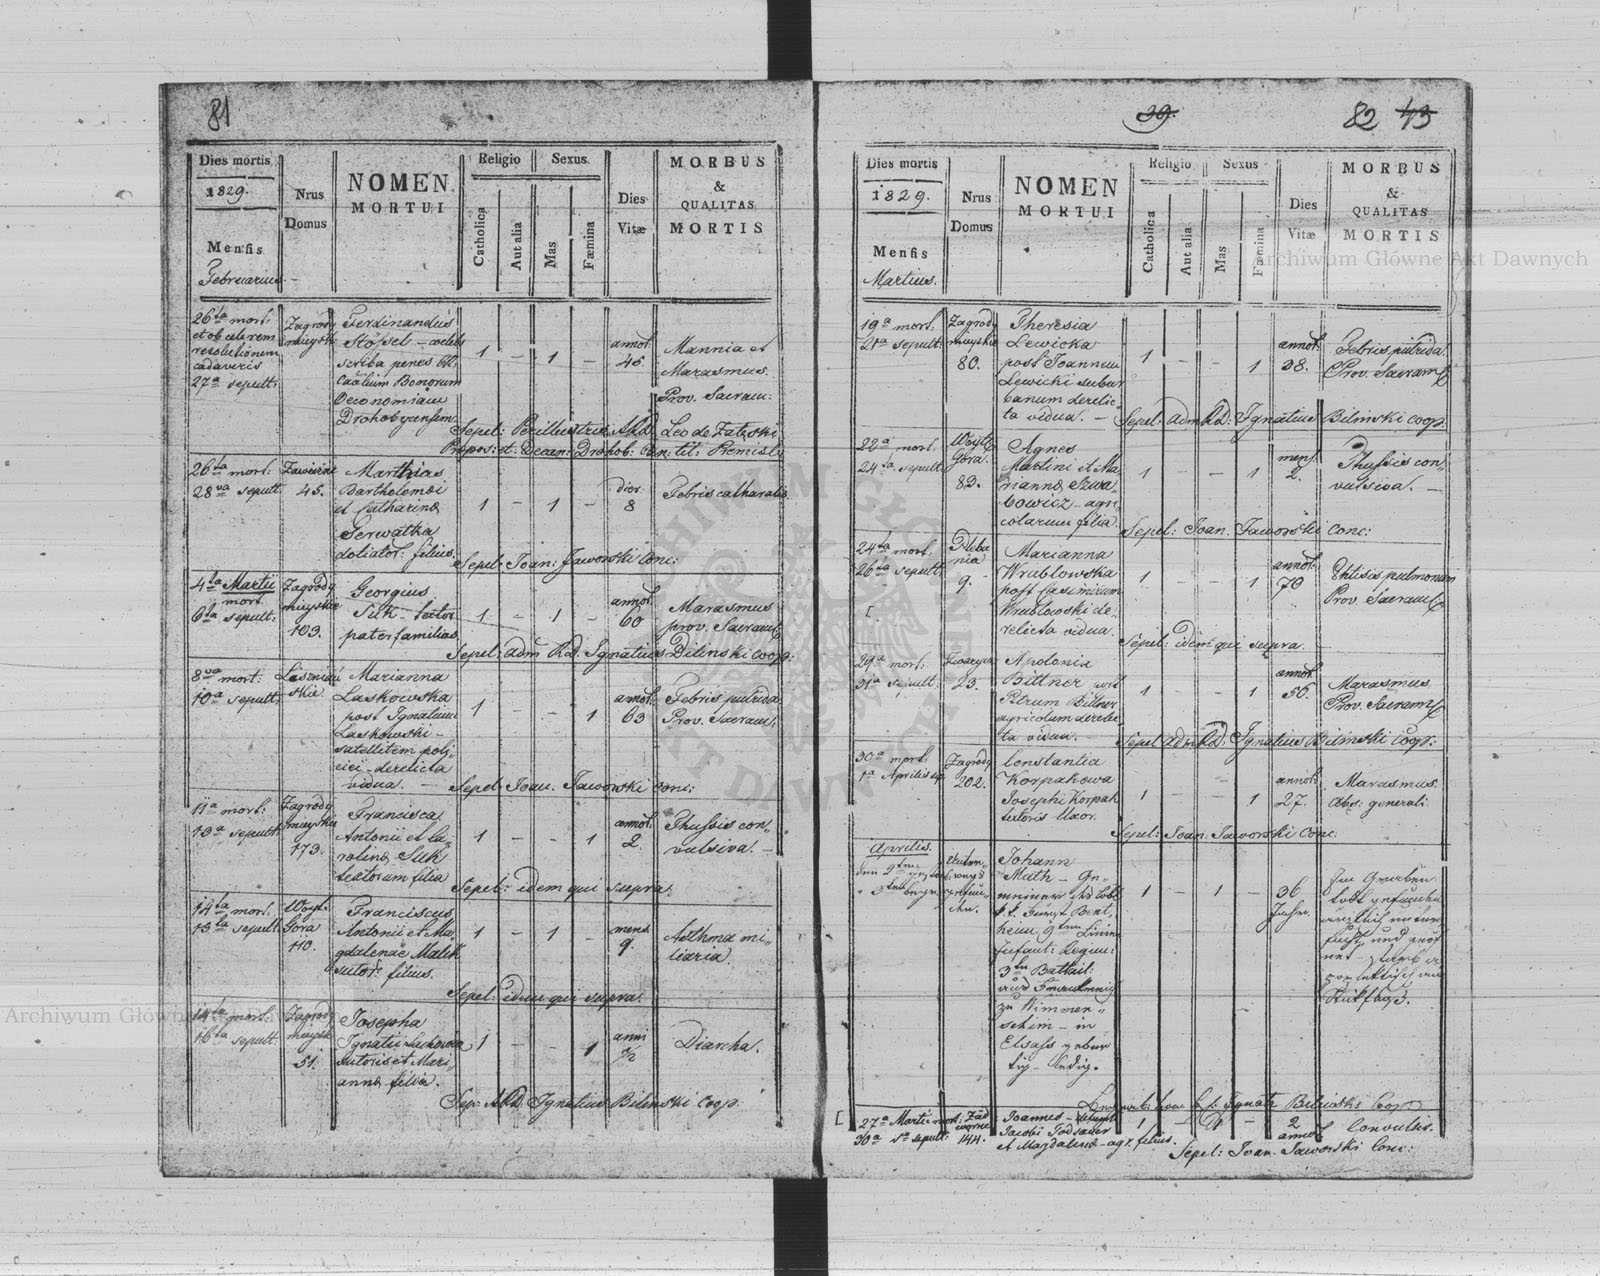 81
Dies mortis
1829.
Mensis
Februarius
Nrus
Domus
NOMEN
MORTUI
Religio
Catholica
Aut alia
Sexus.
Mas
Fæmina
Dies
Vitæ
MORBUS
&
QUALITAS
MORTIS
26ta mort:
et ob celerem
resolutionem
cadaveris
27a sepult:
Zagrody
mieyskie
Ferdinandus
Stössel
scriba penes
Bonorum
Oeconomiam
Drohobycensem
1 - 1 -
annor.
45.
Mannia et
Marasmus.
Prov. Sacram:
Sepel: Perillustris Leo de Załęski
Propos: et Decan: Drohob: Can: tit: Premisl:
26ta mort:
28va sepult:
45.
Matthias
Bartholomæi
et Catharinæ
Serwatka
doliator: filius.
1 - 1 -
dier.
8
Febris catharalis
Sepel: Joan: Jaworski Conc:
4ta Martii
mort:
6ta sepult:
Zagrody
mieyskie
103.
Georgius
Suk - textor
pater familias.
1 - 1 -
annor.
60
Marasmus
prov. Sacram:
Sepel: Adm Rd: Ignatius Bilinski Coop:
8va mort:
10a sepult:
Marianna
Laskowska
post Ignatium
Laskowski -
satellitem poli-
cii - derelicta
vidua. -
1 - - 1
annor.
63
Febris putrida.
Prov. Sacram:
Sepel: Joan. Jaworski Conc:
11a mort:
13a sepult:
Zagrody
mieyskie
173.
Francisca
Antonii et Ca-
rolinæ Suk
textorum filia
1 - - 1
annor.
2.
Thussis con-
vulsiva. -
Sepel: idem qui supra.
14ta mort:
15ta sepult.
Woyt:
Gora
110.
Franciscus
Antonii et Ma
gdalenae Malik
sutor: filius.
1 - 1 -
mens.
9.
Asthma mi-
liaria
Sepel: idem qui supra.
14ta mort:
16ta sepult.
Zagrody
mieysk:
51.
Josepha
Ignatii
sutoris et Mari-
annæ filia.
1 - - 1
anni
1/2
Diarrha.
Sep: Ignatius Bilinski Coop:
39.
82 43
Dies mortis
1829.
Mensis
Martius.
Nrus
Domus
NOMEN
MORTUI
Religio
Catholica
Aut alia
Sexus
Mas
Fæmina
Dies
Vitæ
MORBUS
&
QUALITAS
MORTIS
19a mort:
21a sepult:
Zagrody
mieyskie
80.
Theresia
Lewicka
post Joannem
Lewicki subur
banum derelic-
ta vidua. -
1 - - 1
annor.
38.
Febris putrida.
Prov. Sacram:
Sepel: Adm Rd: Ignatius Bilinski Coop:
22a mort.
24ta sepult
Woyt:
Gora.
82.
Agnes
Martini et Ma
riannæ
agri-
colarum filia.
1 - - 1
mens.
2.
Thussis con-
vulsiva. -
Sepel: Joan. Jaworski Conc:
24ta mort.
26ta sepult:
Pleba
nia
9.
Marianna
Wrublowska
post Casimirum
Wrublowski de-
relicta vidua.
1 - - 1
annor.
70
Phtisis pulmonum
Prov. Sacram:
Sepel: idem qui supra.
mort:
31a sepult:
23.
Apolonia
Bittner post
Petrum Bittner
agricolam derelic-
ta vidua. -
1 - - 1
annor.
56.
Marasmus
Prov. Sacram:
Sepel: Adm Rd: Ignatius Bilinski Coop:
30a mort:
1a Aprilis sep.
Zagrody
202.
Constantia
Korpakowa
Josephi Korpak
textoris Uxor.
1 - - 1
annor.
27.
Marasmus.
Sepel: Joan: Jaworski Conc:
Aprilis.
Johann
Math - Ge-
meiner des
Fürst Bent-
heim 9ten Linien
Infant: Regim:
3ten Battail:
aus Frankreich
zu
in
Elsass gebür
tig - ledig.
1 - 1 -
36
Jahr.
Im Garten
todt gefunden
Stikfluß.
Ignatz Bilinski Coop:
27a Martii mort:
30a sepult:
144.
Joannes
Jacobi
et Magdalenæ - agr. filius.
1 - 1 -
2
annor.
Convulsis.
Sepel: Joan. Jaworski Conc:
Archiwum Główne Akt Dawnych